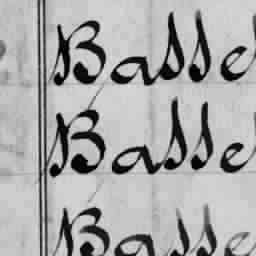 Basse
Basse
Basse